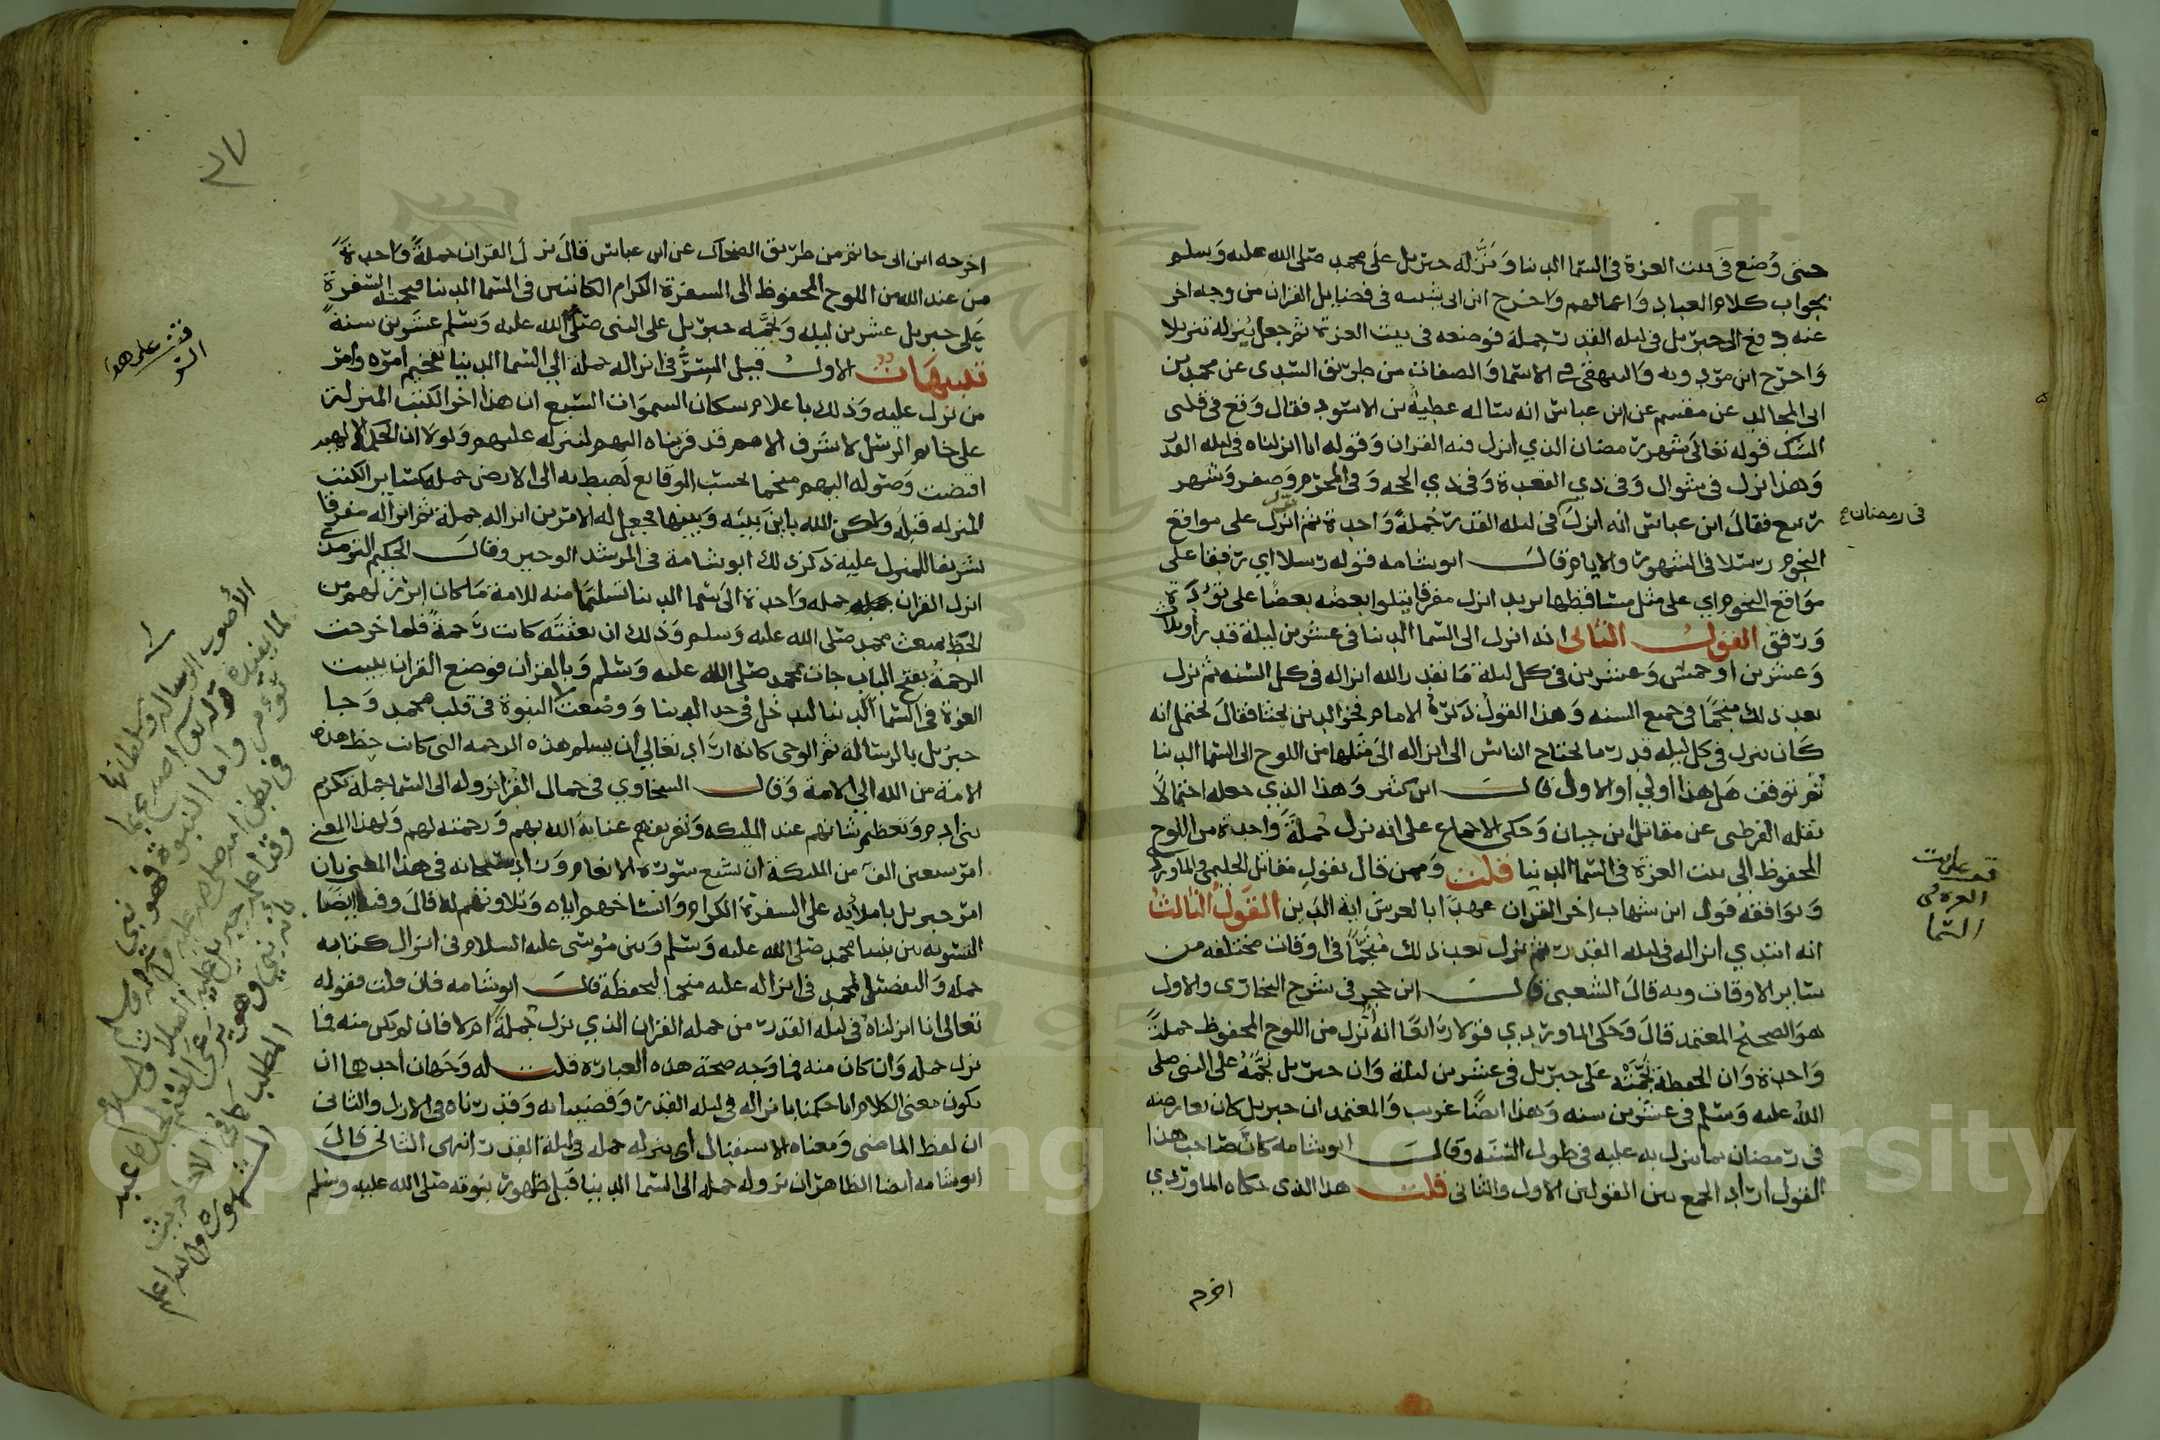 حتى وُضع في بيت العزة في السما الدنيا وَنزَّله جبريل على محمد صَلى الله عليه وَسلم
بجواب كلام العباد وَاعمالهم وَاخرج ابن ابى شيبه في فضايل القران من وجه اخر
عنه دفع الى جبريل في ليله القدر جملة فوضعه في بيت العزة ثم جعل ينزله تنزيلا
وَاخرج ابن مردويه وَالبيهقى في الاسما وَالصفات من طريق السّدى عن محمد بن
ابى المجالد عن مقسم عن ابن عباس انه ساله عطية بن الاسود فقال وَقع في قلبى
الشك قوله تعالى شهر رمضان الذي انزل فيه القران وَقوله انا انزلناه في ليلة القدر
وَهذا نزل في شوال وَفى ذي القعدة وَفى ذي الحجه وَفى المحرّم وَصفر وَشهر
ربيع فقال ابن عباس انه انزل في ليله القدر جُملةً وَاحدة ثم انزل على مواقع
في رمضان
النجوم رسلا في الشهور والايام قال ابو شامه قوله رسلا اي رفقا على
مَوَاقع النجوم اي على مثل مساقطها يريد انزل مفرقا يتلوا بعضه بعضًا على تؤدة
وَرفق القول الثانى انه انزل الى السّما الدنيا في عشرين ليلة قدر او ثلاث
وَعشرين او خمس وَعشرين في كل ليلة مَا يقدر الله انزاله في كل السّنه ثم نزل
بعد ذلك منجّمًا في جميع السنه وَهذا القول ذكره الامام فخر الدين بحثا فقال يحتمل انه
كان ينزل في كل ليله قدر ما يحتاج الناس الى انزاله الى مثلها من اللوح الى السّما الدنيا
ثم توقف هَل هذا اولى او الاول قال ابن كثير وَهذا الذي جعله احتمالاً
نقله القرطبى عن مقاتل بن حيان وَحكى الاجماع على انه نزل جُملةً وَاحدة من اللوح
المحفوظ الى بيت العزة في السّما الدنيا قلت وَممن قال بقول مقاتل الحليمى والماوردى
قف على بيت
العزه فى
السّما
وَيوَافقه قول ابن شهاب اخر القران عهدًا بالعرش ايه الدين القول الثالث
انه ابتدي انزاله في ليله القدر ثم نزل بعد ذلك مُنجّمًا في اوقات مختلفه من
ساير الاوقات وبه قال الشعبى قال ابن حجر في شرح البخارى والاول
هوَ الصحيح المعتمد قال وَحكى الماوردي قولا رابعًا انه نزل من اللوح المحفوظ جملةً
وَاحدة وَان الحفظة نجّمته على جبريل في عشرين ليلة وَان جبريل نجّمه على النبى صلى
الله عليه وَسلم في عشرين سنه وَهذا ايضًا غريب وَالمعتمد ان جبريل كان يعارضه
في رمضان بما ينزل به عليه في طول السّنه وقال ابو شامه كان صاحب هذا
القول ارَاد الجمع بين القولين الاول والثانى قلت هذا الذى حكاه الماوردي
اخرج
اخرجه ابن ابى حاتم من طريق الضحاك عن ابن عباس قال نزل القران جملةً وَاحدةً
من عند الله من اللوح المحفوظ الى السفرة الكرام الكاتبين في السّما الدنيا فنجمته السّفرة
عَلى جبريل عشرين ليله وَنجّمه جبريل على النبى صَلى الله عليه وَسَلم عشرين سنةً
تنبيهات الاول قيل السّرُّ في انزاله جملة الي السّما الدنيا تفخيم امره وَامر
قف على هذا
السّر
من نزل عليه وَذلك باعلام سكان السموَات السّبع ان هذا اخر الكتب المنزلة
على خاتم الرسل لاشرف الامم قد قربناه اليهم لننزله عليهم وَلولا ان الحكمة الالهيه
اقتضت وَصوله اليهم منجما بحسب الوقايع لَهبط به الى الارض جملة كساير الكتب
المنزله قبله وَلكن الله باين بينه وَبينها فجعل له الامرين انزاله جملة ثم انزاله مفرقا
تشريفا للمنزل عليه ذكر ذلك ابو شامة في المرشد الوجيز وقال الحكيم الترمذى
انزل القران جمله وَاحدة الى سما الدنيا تسليمًا منه للامة مَا كان ابرز لهم من
الحظ بمبعث محمد صلى الله عليه وَسلم وَذلك ان بعثته كانت رَحمةً فلما خرجت
الرحمة بفتح الباب جات بمحمد صلى الله عليه وَسَلم وَبالقران فوضع القران ببيت
العزة في السّما الدنيا ليدخل في حد الدنيا وَوضعت النبوة في قلب محمد وَجا
جبريل بالرسالة ثم الوحى كانه ارَاد تعالى ان يسلم هذه الرحمه التى كانت حظ هذه
الامة من الله الي الامة وَقال السخاوي في جمال القرا نزوله الى السّما جملة تكريم
بنى ادم وَتعظيم شانهم عند المليكه وَتعريفهم عناية الله بهم وَرحمته لهم وَلهذا المعنى
امر سبعين الفًا من المليكة ان تشيع سُورَة الانعام وَزاد سبحانه في هذا المعنى بان
امر جبريل باملايه على السفرة الكرام وَانساخهم اياه وَتلاوتهم له قال وَفيه ايضًا
التسويه بين نبينا محمد صلى الله عليه وَسَلم وَبين مُوسى عليه السلام في انزال كتابه
جمله وَالتفضيل لمحمد في انزاله عليه منجما ليحفظه قال ابو شامه فان قلت فقوله
تعالى انا انزلناه في ليله القدر من جمله القران الذي نزل جُملةً ام لا فان لم يكن منه فما
نزل جمله وَان كان منه فما وَجه صحة هذه العبارَه قلت له وَجهان احدهما ان
يكون معنى الكلام انا حكمنا بانزاله في ليله القدر وَقضينا به وَقدرناه في الازل والثانى
ان لفظ الماضى وَمعناه الاستقبال اى ننزله جمله في ليلة القدر انهى الثانى قال
ابو شامه ايضا الظاهر ان نزوله جمله الى السّما الدنيا قبل ظهور نبوته صَلى الله عليه وَسَلم